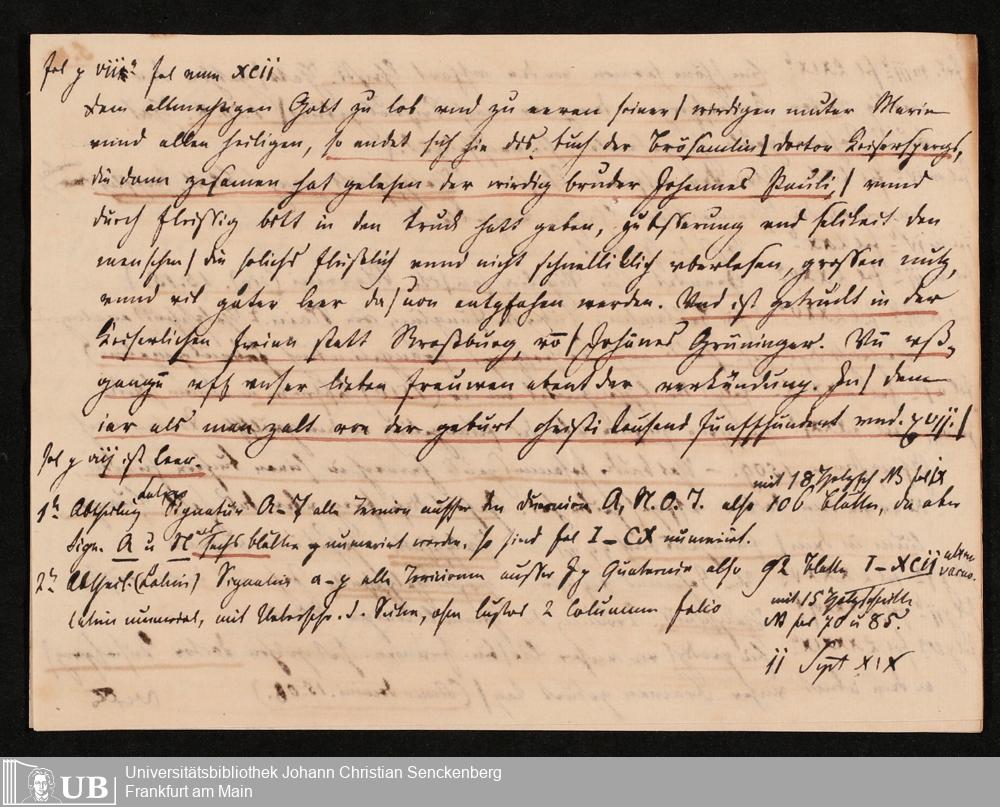 fol p viii fol num XCII
Dem allmechtigen Gott zu lob vnd zu eeren seiner / wirdigen muter Marie
vnnd allen heiligen, so endet sich hie dis buch der Brösamlin / doctor Keiserspergs,
die dann zesamen hat gelesen der wirdig bruder Johannes Pauli, / vnnd
durch fleissig bitt in den truck hatt geben, zu besserung vnd selikeit den
menschen / die solichs fleißlich vnnd nicht schnelliklich vberlesen, grossen nutz,
vnnd vil guter leer da / uon entpfahen werden. Vnd ist getruckt in der
Keiserlichen freien statt Straßburg, vō / Johānes Grüninger. Vn̄ vß-
gangē vff vnser lieben frauwen abent der verkündung. In / dem
iar als man zalt von der geburt christi tausend funffhundert vnd. xvij. /
fol p viij ist leer
mit 18 Holzsch NB fol IX
1te Abtheilung Signatur A–T alle Ternion ausser den Duernion A, N. O. T. also 106 blätter, da aber
Sign. A u N sechs blätter numerirt worden, so sind fol I–CX numerirt.
2te Abtheil. (Latein) Signatur a–p alle Ternionen ausser Quaternio also 92 blätter I–XCII
latein numerirt, mit Ueberschr. d. Seiten, ohne Custos 2 Columnen folio
mit 15 Holzschnitte
NB fol 70 u 85.
ii Sept XIX
UB
Universitätsbibliothek Johann Christian Senckenberg
Frankfurt am Main